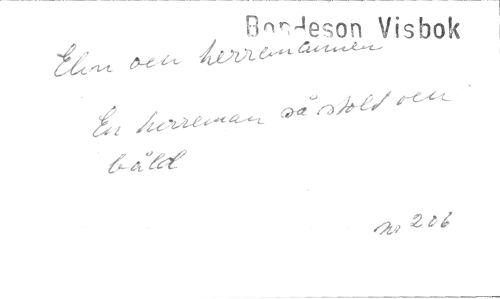 Bondeson Visbok
Elin och herremannen
En herreman så stolt och
båld
nr 206